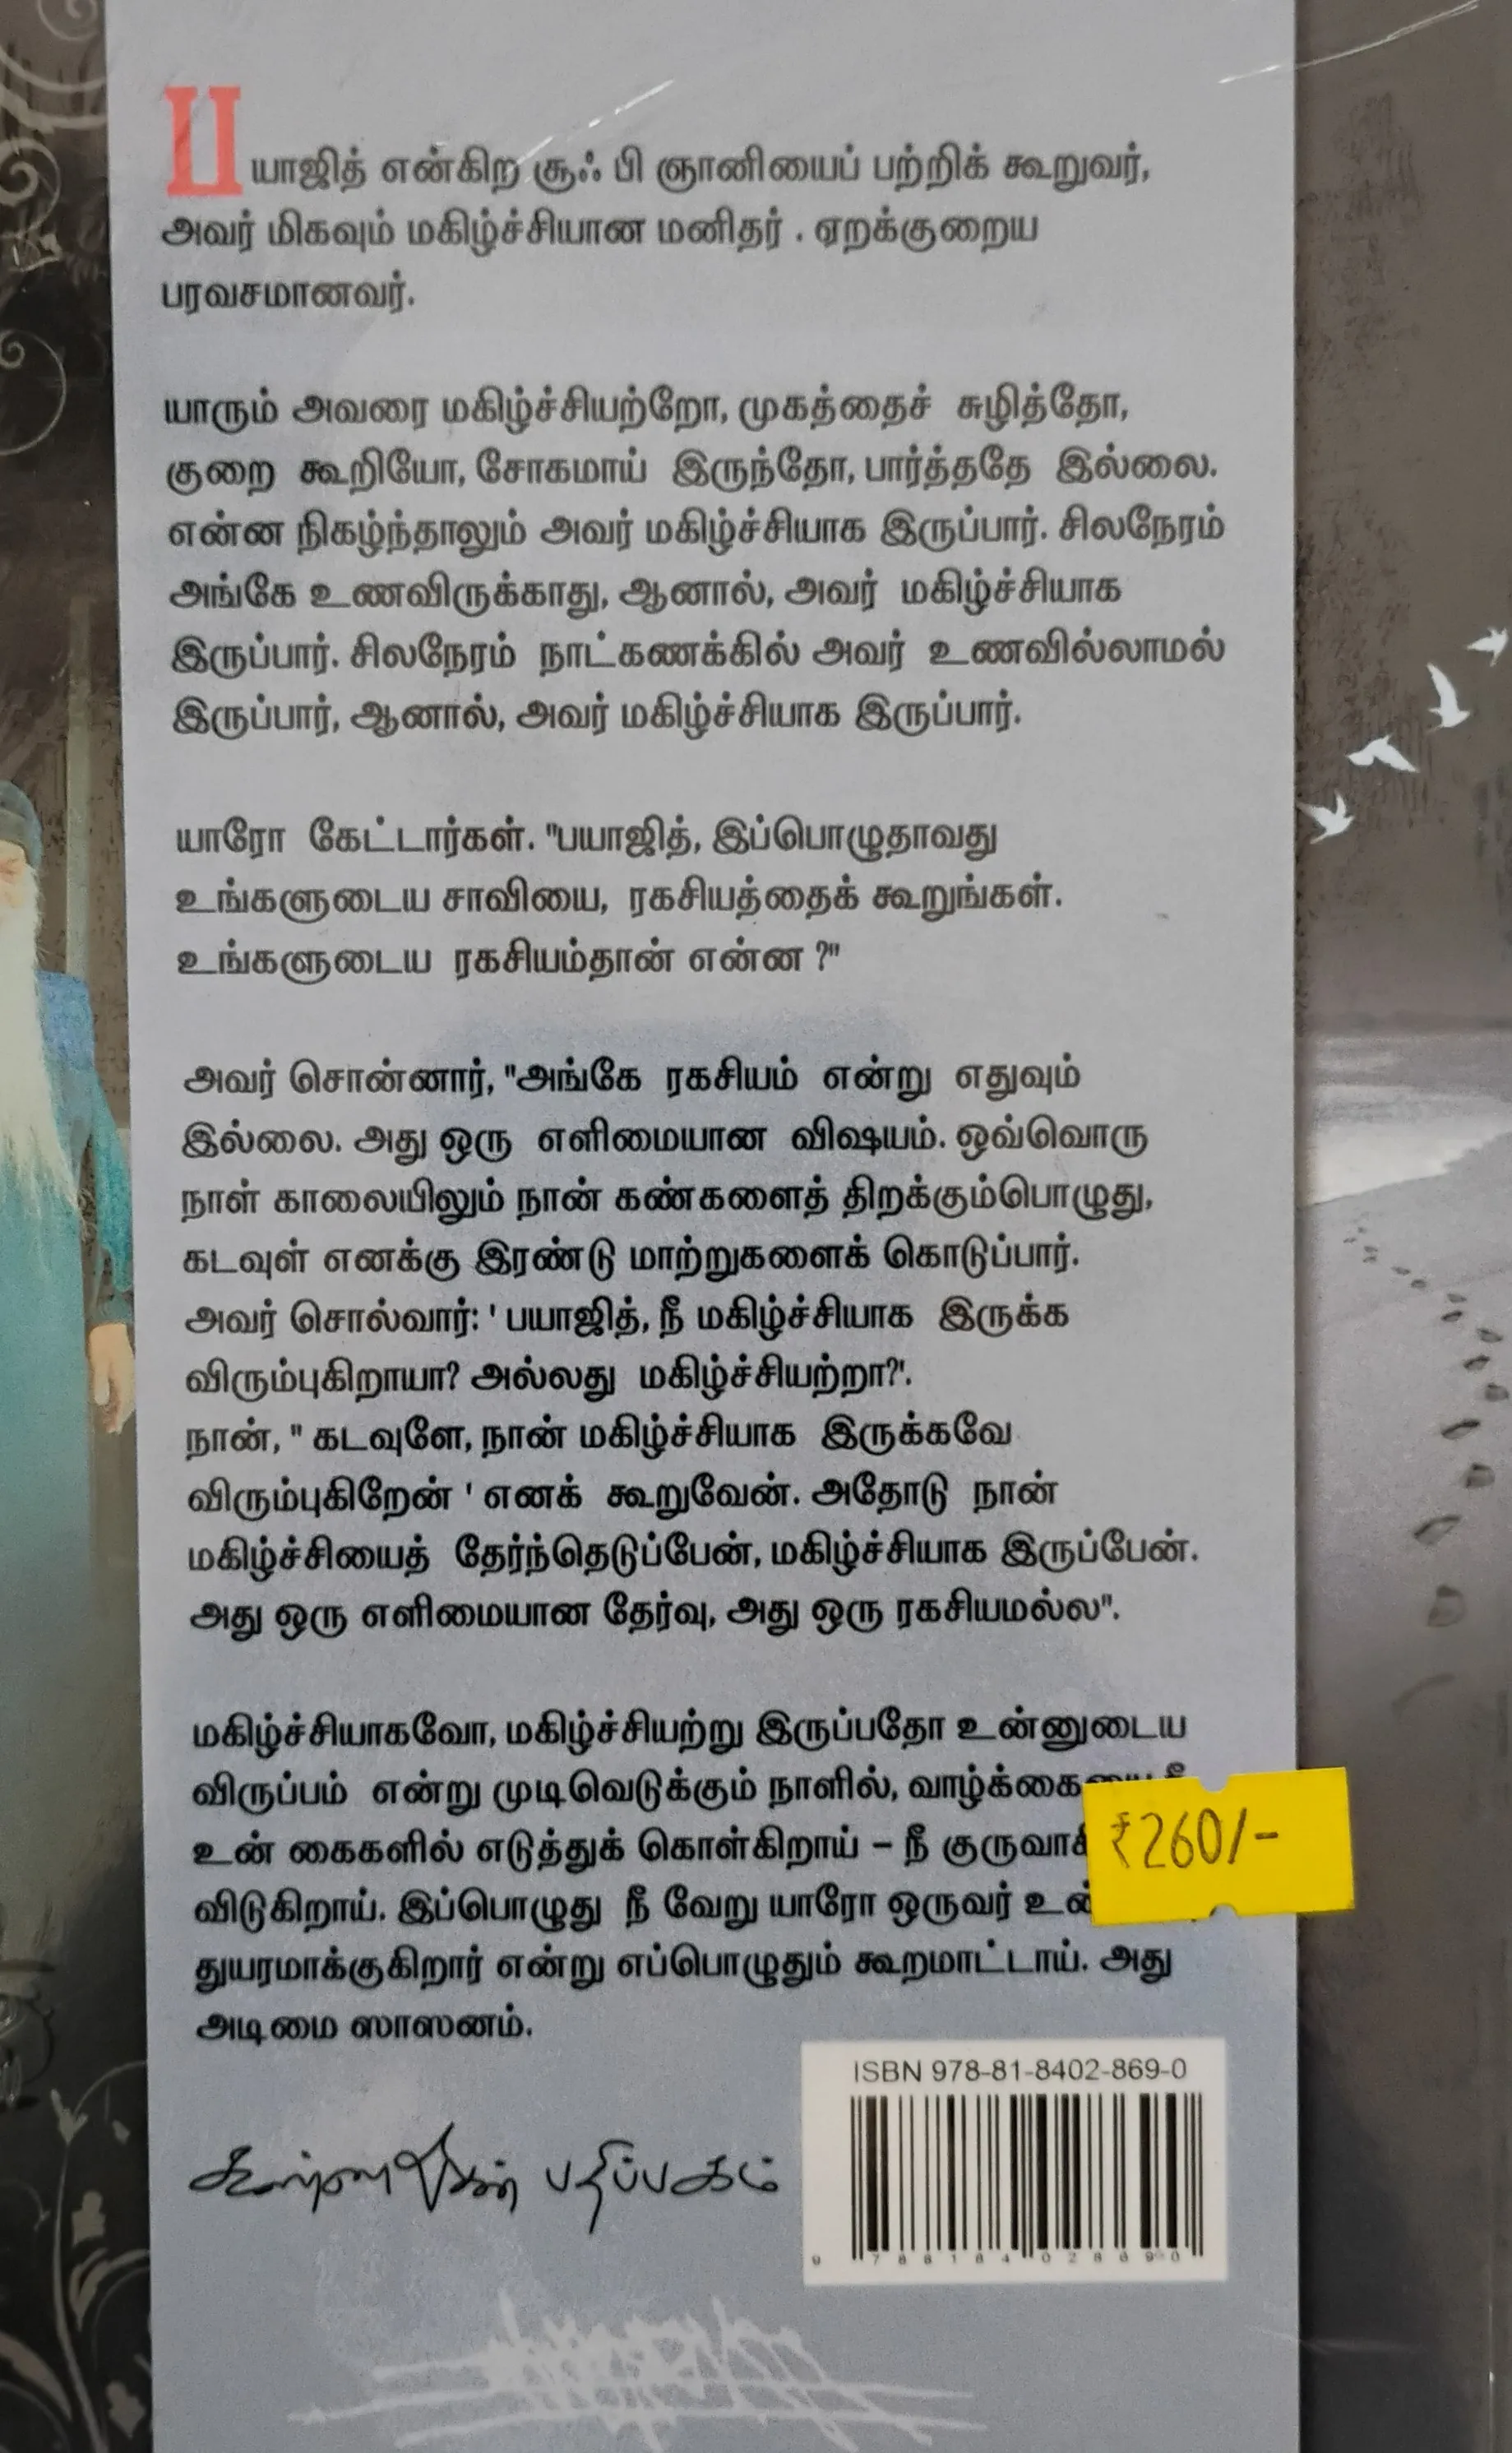 பயாஜித் என்கிற சூஃபி ஞானியைப் பற்றிக் கூறுவர்,
அவர் மிகவும் மகிழ்ச்சியான மனிதர் . ஏறக்குறைய
பரவசமானவர்.
யாரும் அவரை மகிழ்ச்சியற்றோ, முகத்தைச் சுழித்தோ,
குறை கூறியோ, சோகமாய் இருந்தோ, பார்த்ததே இல்லை.
என்ன நிகழ்ந்தாலும் அவர் மகிழ்ச்சியாக இருப்பார். சிலநேரம்
அங்கே உணவிருக்காது, ஆனால், அவர் மகிழ்ச்சியாக
இருப்பார். சிலநேரம் நாட்கணக்கில் அவர் உணவில்லாமல்
இருப்பார், ஆனால், அவர் மகிழ்ச்சியாக இருப்பார்.
யாரோ கேட்டார்கள். "பயாஜித், இப்பொழுதாவது
உங்களுடைய சாவியை, ரகசியத்தைக் கூறுங்கள்.
உங்களுடைய ரகசியம்தான் என்ன ?"
அவர் சொன்னார், "அங்கே ரகசியம் என்று எதுவும்
இல்லை. அது ஒரு எளிமையான விஷயம். ஒவ்வொரு
நாள் காலையிலும் நான் கண்களைத் திறக்கும்பொழுது,
கடவுள் எனக்கு இரண்டு மாற்றுகளைக் கொடுப்பார்.
அவர் சொல்வார்: ' பயாஜித், நீ மகிழ்ச்சியாக இருக்க
விரும்புகிறாயா? அல்லது மகிழ்ச்சியற்றா?'.
நான், " கடவுளே, நான் மகிழ்ச்சியாக இருக்கவே
விரும்புகிறேன் ' எனக் கூறுவேன். அதோடு நான்
மகிழ்ச்சியைத் தேர்ந்தெடுப்பேன், மகிழ்ச்சியாக இருப்பேன்.
அது ஒரு எளிமையான தேர்வு, அது ஒரு ரகசியமல்ல".
மகிழ்ச்சியாகவோ, மகிழ்ச்சியற்று இருப்பதோ உன்னுடைய
விருப்பம் என்று முடிவெடுக்கும் நாளில், வாழ்க்கையை நீ
உன் கைகளில் எடுத்துக் கொள்கிறாய் – நீ
விடுகிறாய். இப்பொழுது நீ வேறு யாரோ ஒருவர்
துயரமாக்குகிறார் என்று எப்பொழுதும் கூறமாட்டாய். அது
அடிமை ஸாஸனம்.
₹260/-
ISBN 978-81-8402-869-0
கண்ணதாசன் பதிப்பகம்
9 788184 028690